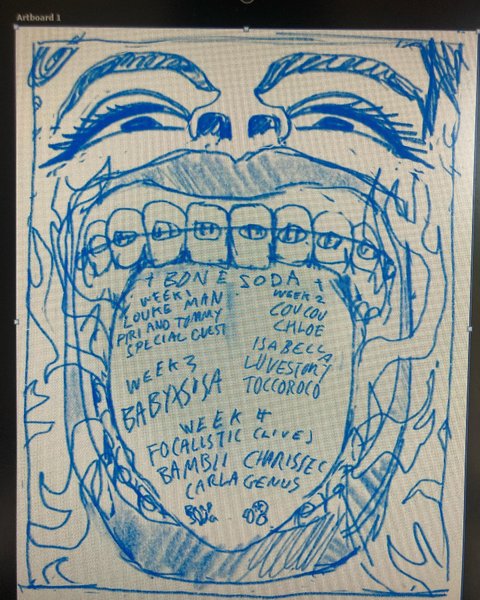 Artboard 1
+ BONE SODA +
WEEK 1
LOUKE MAN
PIRI AND TOMMY
SPECIAL GUEST
WEEK 2
COUCOU
CHLOE
ISABELLA
LUVESTORY
TOCCOROCO
WEEK 3
BABYXSOSA
WEEK 4
FOCALISTIC (LIVE)
BAMBII CHARISSE C
CARLA GENUS